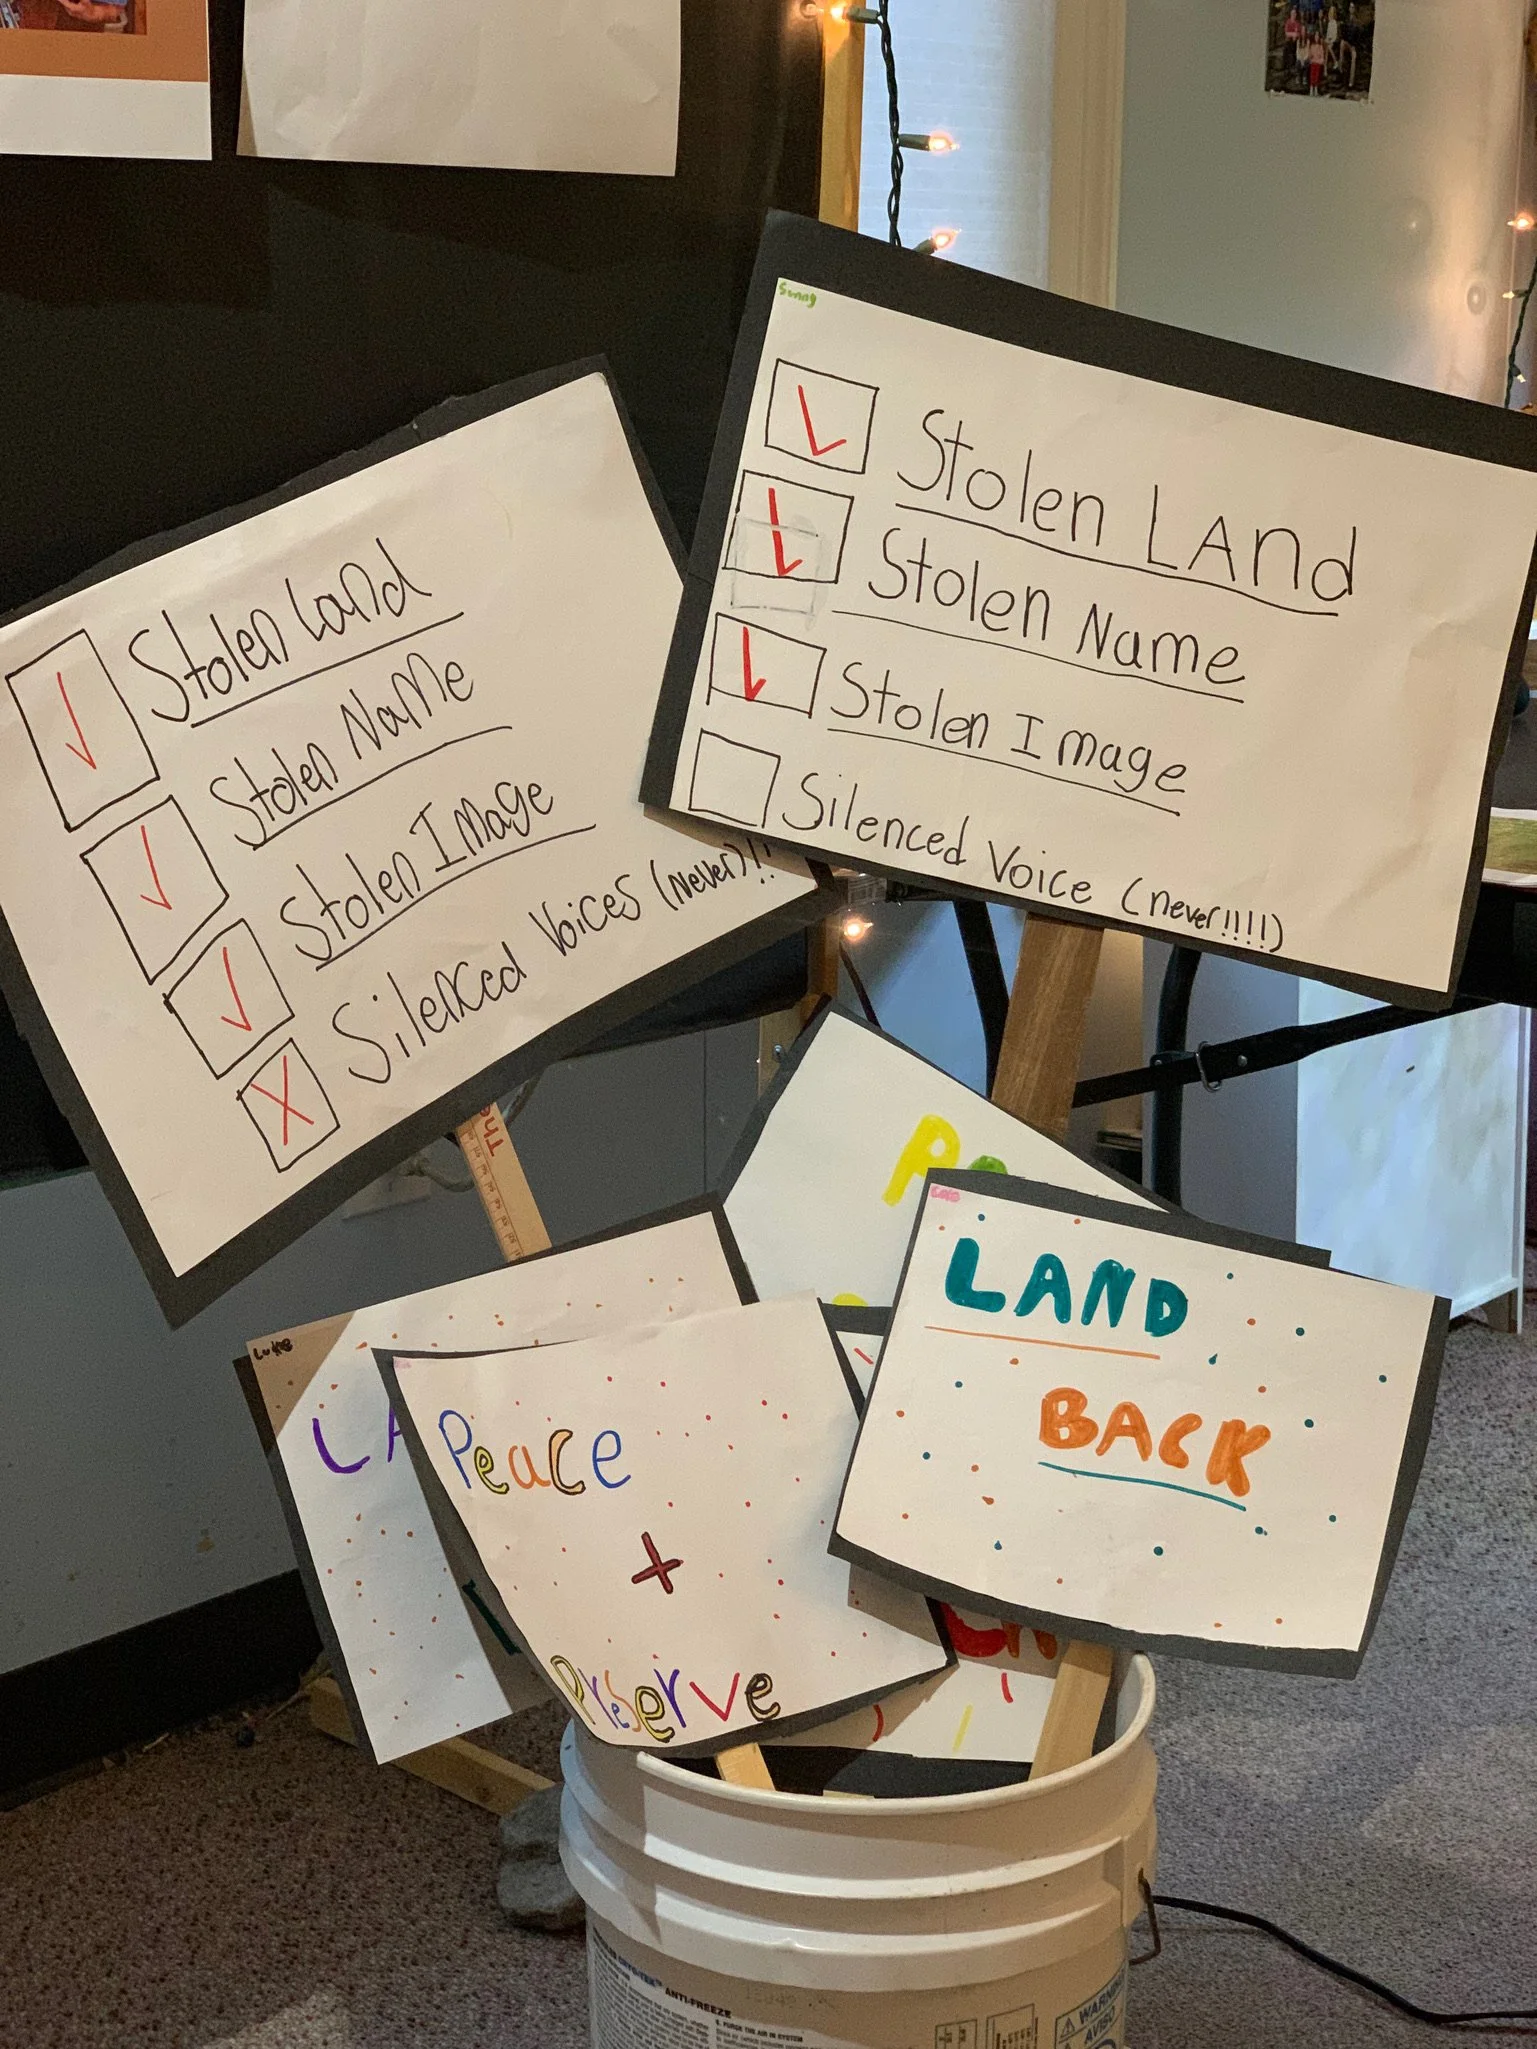 Sunny
Stolen LAnd
Stolen Name
Stolen Image
Silenced Voice (never!!!!)
Stolen Land
Stolen NaMe
Stolen IMage
Silenced Voices (Never)!!
X
The
LUKE
LA
Peace
+
Preserve
P
COCO
LAND
BACK
ANTI-FREEZE
WARNING
AVISO